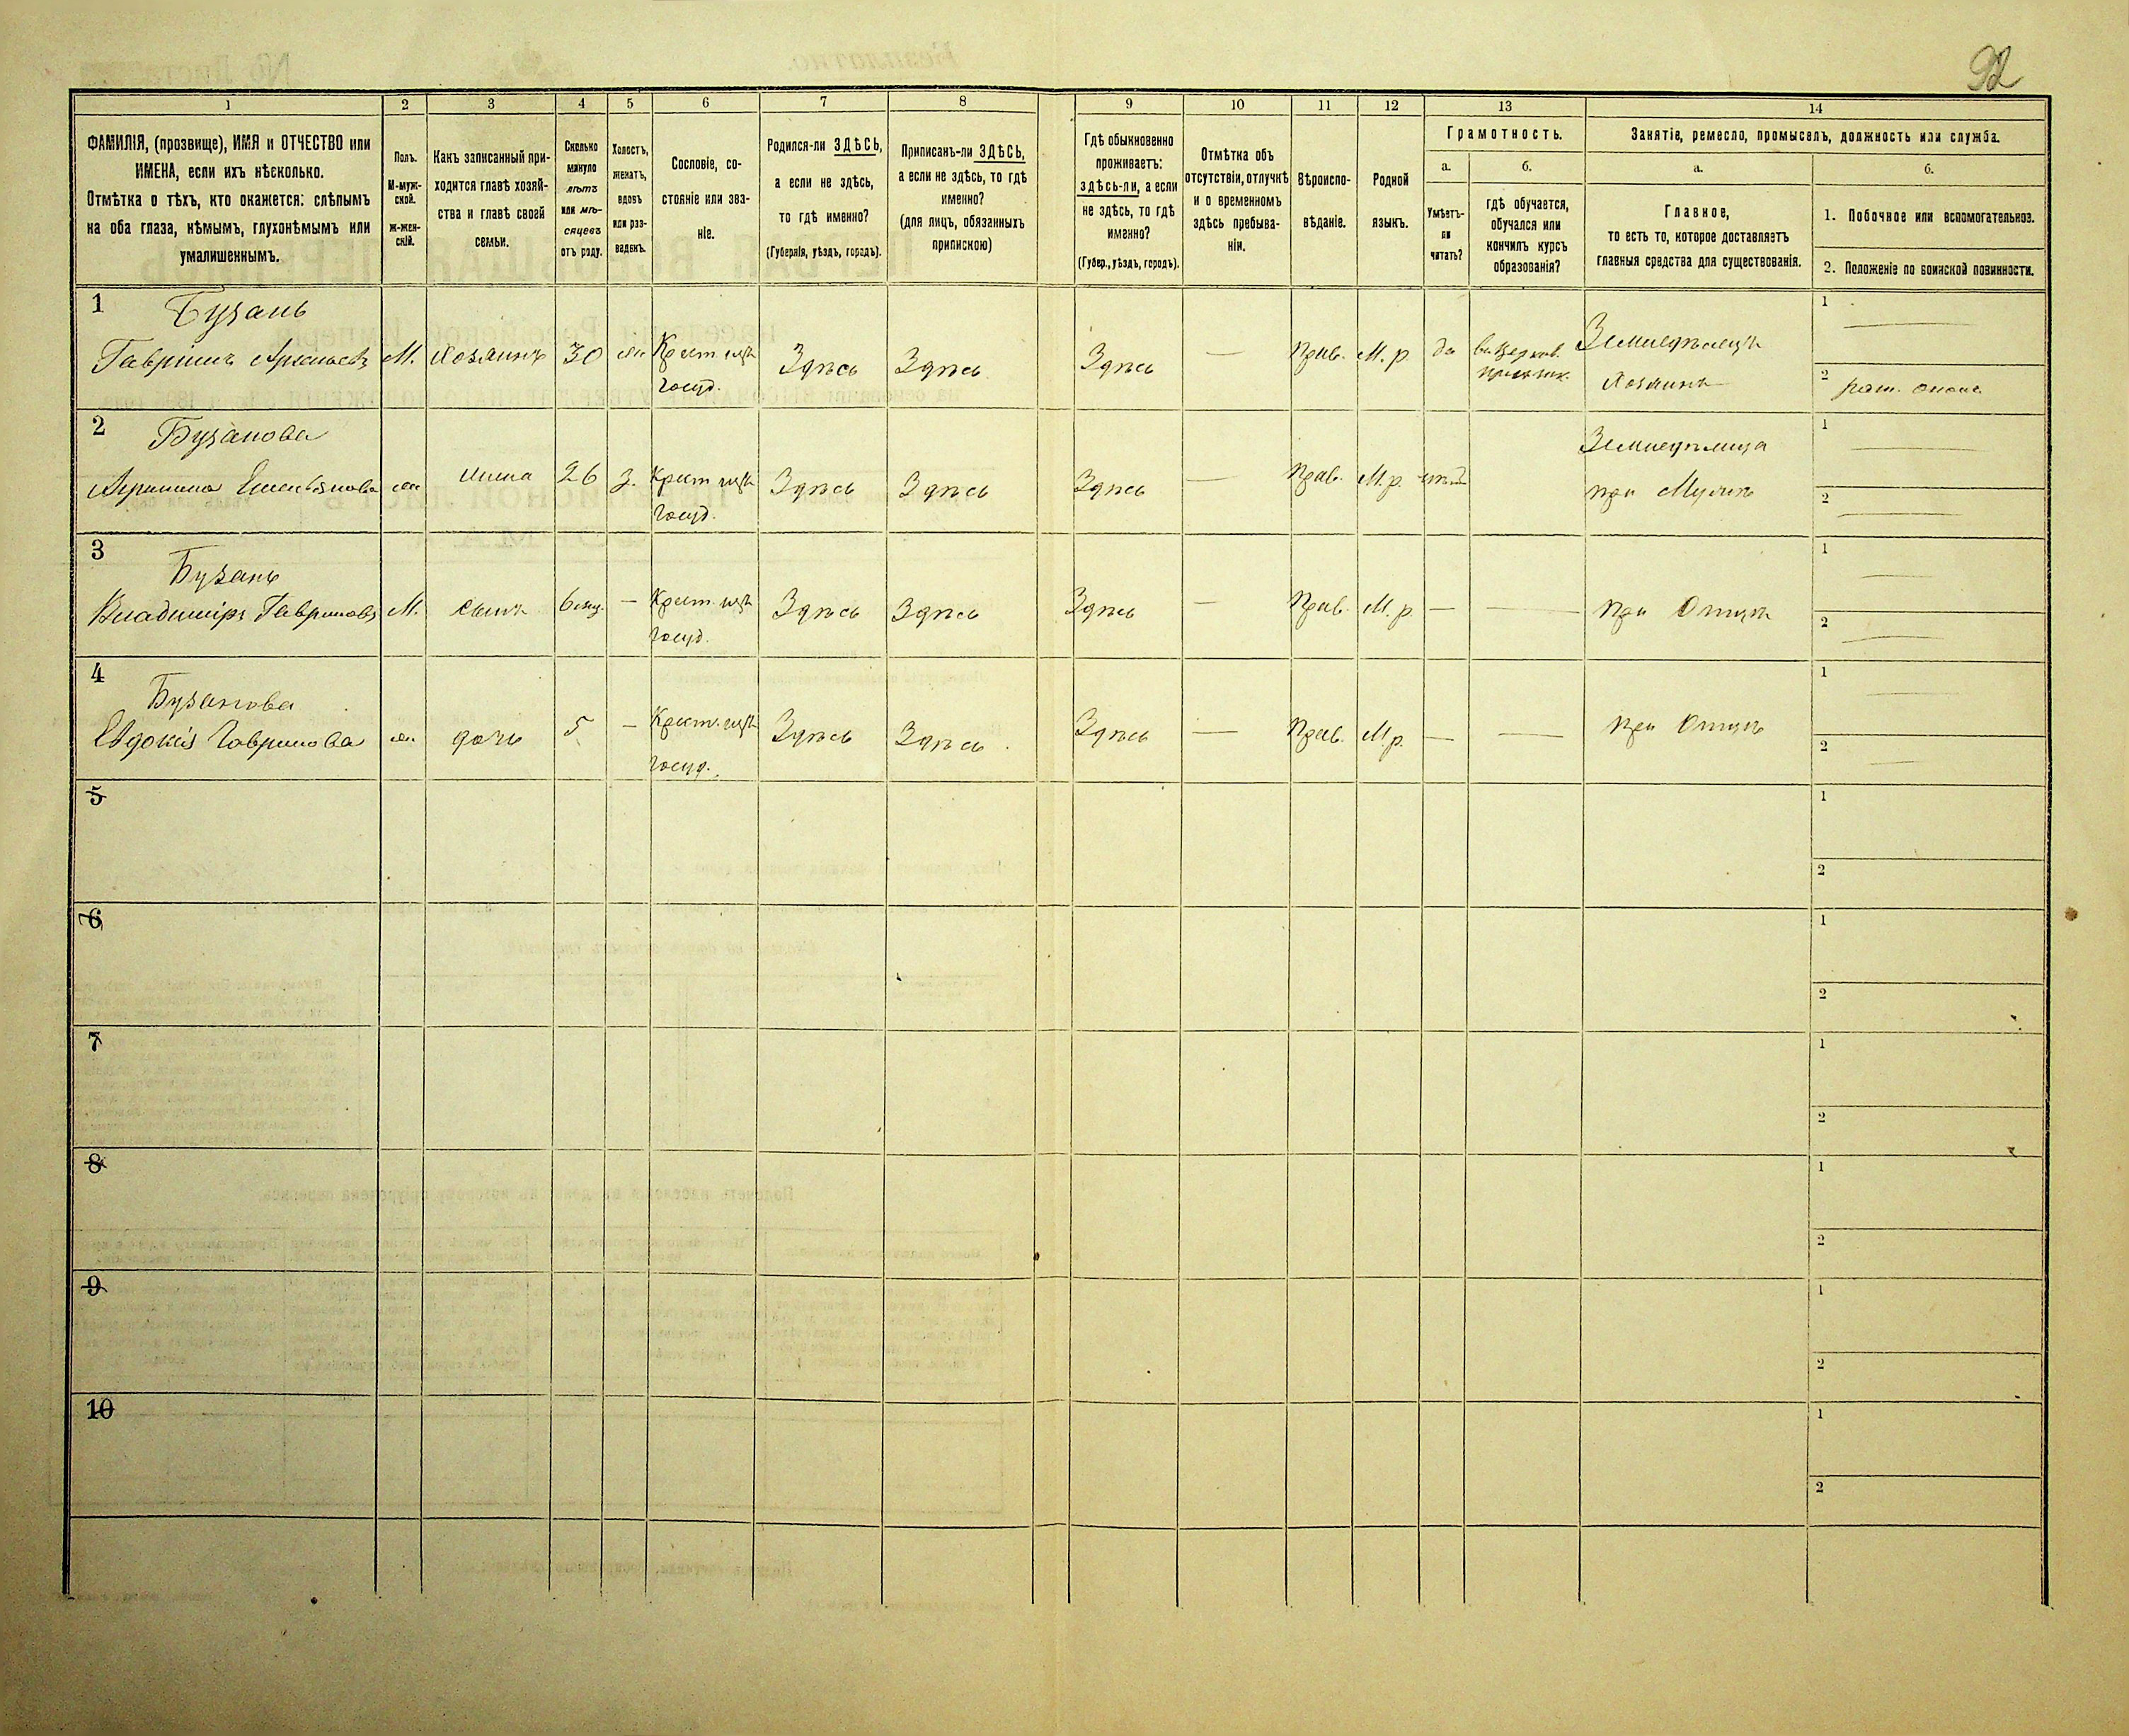 92
1 2 3 4 5 6 7 8 9 10 11 12 13 14
ФАМИЛІЯ, (прозвище), ИМЯ и ОТЧЕСТВО или
ИМЕНА, если ихъ нѣсколько.
Отмѣтка о тѣхъ, кто окажется: слѣпымъ
на оба глаза, нѣмымъ, глухонѣмымъ или
умалишеннымъ.
Полъ.
М-муж-
ской.
ж-жен-
скій.
Какъ записанный при-
ходится главѣ хозяй-
ства и главѣ своей
семьи.
Сколько
минуло
лѣтъ
или мѣ-
сяцевъ
отъ роду.
Холостъ,
женатъ,
вдовъ
или раз-
веденъ.
Сословіе, со-
стояніе или зва-
ніе.
Родился-ли ЗДѢСЬ,
а если не здѣсь,
то гдѣ именно?
(Губернія, уѣздъ, городъ).
Приписанъ-ли ЗДѢСЬ,
а если не здѣсь, то гдѣ
именно?
(для лицъ, обязанныхъ
припискою)
Гдѣ обыкновенно
проживаетъ:
здѣсь-ли, а если
не здѣсь, то гдѣ
именно?
(Губер., уѣздъ, городъ).
Отмѣтка объ
отсутствіи, отлучкѣ
и о временномъ
здѣсь пребыва-
ніи.
Вѣроиспо-
вѣданіе.
Родной
языкъ.
Грамотность.
а.
Умѣетъ-
ли
читать?
б.
гдѣ обучается,
обучался или
кончилъ курсъ
образованія?
Занятіе, ремесло, промыселъ, должность или служба.
а.
Главное,
то есть то, которое доставляетъ
главныя средства для существованія.
б.
1. Побочное или вспомогательное.
2. Положеніе по воинской повинности.
1 Бузань
Гаврiилъ М. Хозяинъ 30 Крест. Здѣсь Здѣсь Здѣсь — Прав. М.р. да Земледѣлецъ
госуд. Хозяинъ
1
2
2 Бузанова
жена 26 з. Крест. Здѣсь Здѣсь Здѣсь — Прав. М.р. нѣтъ Земледѣлица
госуд. при Мужѣ
1
2
3 Бузань
Владимiръ Гавриловъ М. сынъ 6 мц. — Крест. Здѣсь Здѣсь Здѣсь — Прав. М.р. — — при Отцѣ
госуд.
1
2
4 Бузанова
Евдокiя Гаврилова ж. дочь 5 — Крест. Здѣсь Здѣсь Здѣсь — Прав. М.р. — — при Отцѣ
госуд.
1
2
5
1
2
6
1
2
7
1
2
8
1
2
9
1
2
10
1
2